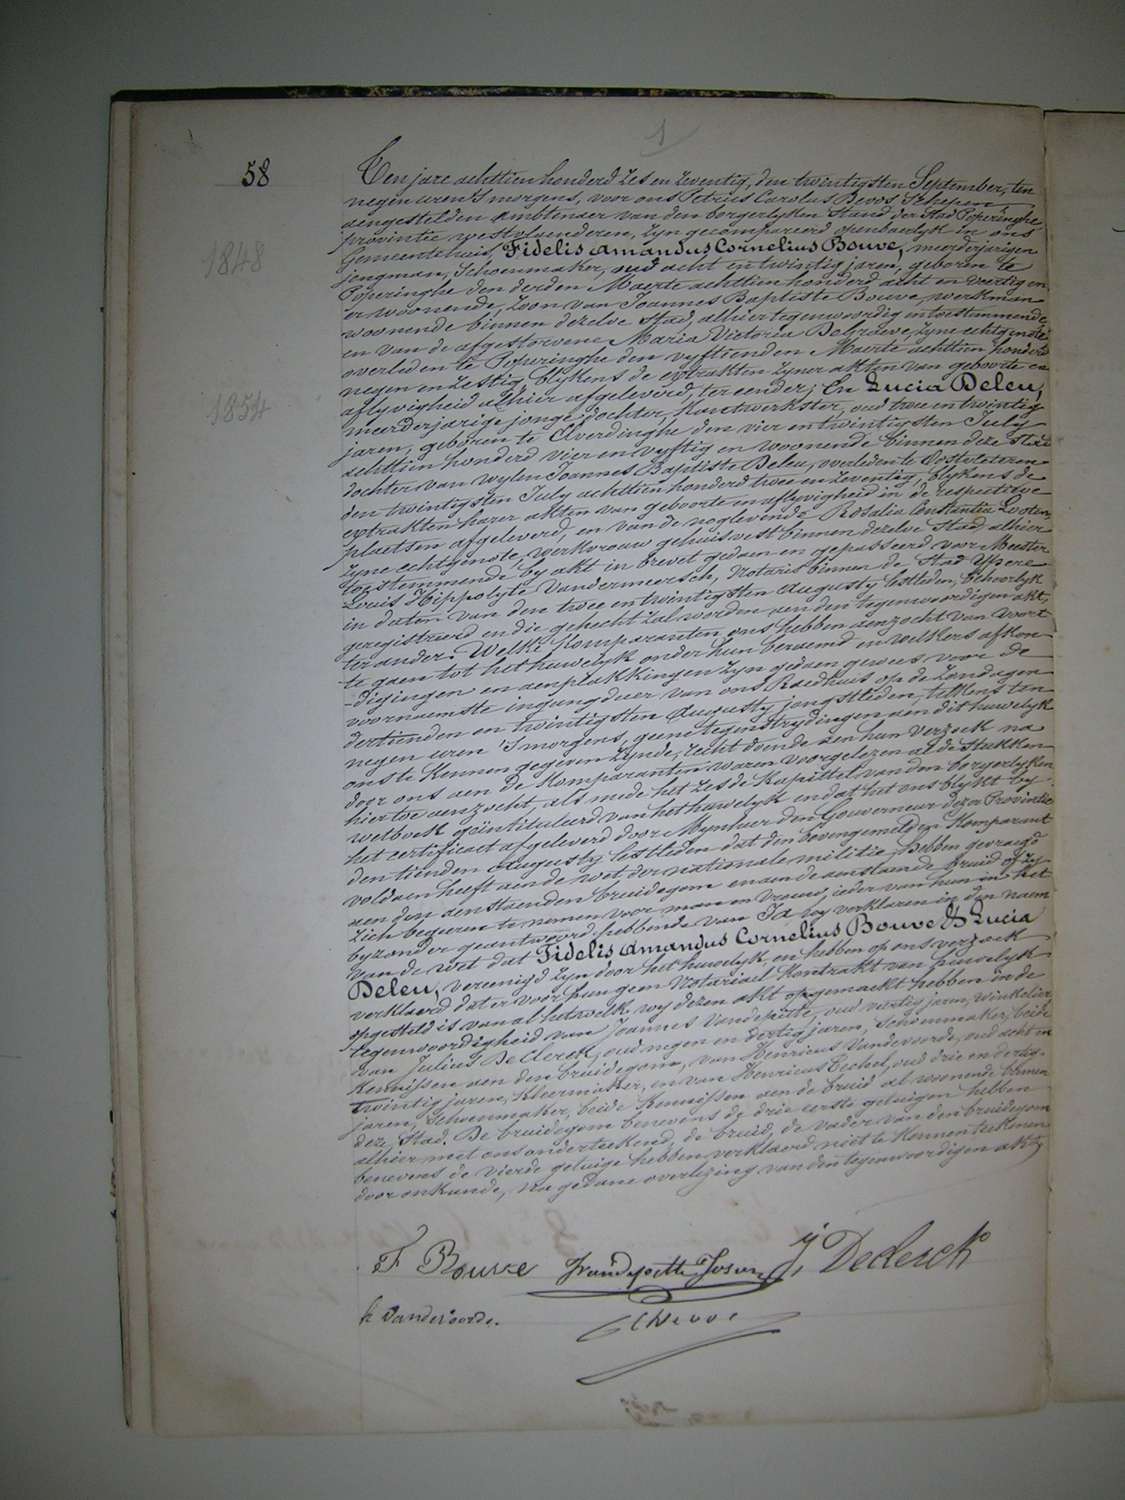 1
58
Ten jare achttien honderd zes en zeventig, den twintigsten September, ten
negen uren 's morgens, voor ons Petrus Carolus Devos Schepen
aengestelden ambtenaer van den borgerlyken Stand der Stad Poperinghe
provintie westvlaenderen, zyn gecompareerd openbaerlyk in ons
Gemeentehuis, Fidelis Amandus Cornelius Bouve, meerderjarigen
1848
jongman, Schoenmaker, oud acht en twintig jaren, geboren te
Poperinghe den derden Maerte achttien honderd acht en veertig en
er woonende, Zoon van Joannes Baptiste Bouve, werkman
woonende binnen dezelve Stad, alhier tegenwoordig en toestemmende
en van de afgestorvene Maria Victoria Delgraeve, zyne echtgenote
overleden te Poperinghe den vyftienden Maerte achttien honderd
negen en zestig, blykens de extrakten zyner akten van geboorte en
aflyvigheid alhier afgeleverd, ter eender; En Lucia Deleu,
1854
meerderjarige jonge dochter, kantwerkster, oud twee en twintig
jaren, geboren te Elverdinghe den vier en twintigsten July
achttien honderd vier en vyftig en woonende binnen deze Stad
dochter van wylen Joannes Baptiste Deleu, overleden te Oostvleteren
den twintigsten July achttien honderd twee en zeventig, blykens de
extrakten harer akten van geboorte en aflyvigheid in de respective
plaetsen afgeleverd, en van de noglevende Rosalia Constantia Looten
zyne echtgenote, werkvrouw gehuisvest binnen dezelve Stad alhier
toestemmende by akt in brevet gedaen en gepasseerd voor Meester
Louis Hippolyte Vandermeersch, Notaris binnen de Stad Ypere
in daten van den twee en twintigsten Augusty lestleden, behoorlyk
geregistreerd en die gehecht zal worden aen den tegenwoordigen akt,
ter ander. Welke komparanten ons hebben aenzocht van voort
te gaen tot het huwelyk onder hun beraemd en welkers afkon-
-digingen en aenplakkingen zyn gedaen geweest voor de
voornaemste ingangdeur van ons Raedhuis op de Zondagen
dertienden en twintigsten Augusty jongstleden, telkens ten
negen uren 's morgens, geene tegenstrydingen aen dit huwelyk
ons te kennen gegeven zynde, recht doende aen hun verzoek na
door ons aen de komparanten waren voorgelezen al de stukken
hiertoe aenzocht, als mede het zesde kapittel van den borgerlyken
wetboek geïntituleerd van het huwelyk en dat het ons blykt by
het certificaet afgeleverd door Mynheer den Gouverneur dezer Provintie
den tienden Augusty lestleden dat den bovengemelden komparant
voldaen heeft aen de wet der nationale militie, hebben gevraegd
aen den aenstaenden bruidegom en aen de aenstaende bruid of zy
zich begeeren te nemen voor man en vrouw, ieder van hun in het
byzonder geantwoord hebbende van Ja wy verklaren in den naem
van de wet dat Fidelis Amandus Cornelius Bouve & Lucia
Deleu, vereenigd zyn door het huwelyk, en hebben op ons verzoek
verklaerd dat er voor hun geen Notariael Kontrakt van huwelyk
opgesteld is van al hetwelk wy dezen akt opgemaekt hebben in de
tegenwoordigheid van Joannes Vandepitte, oud veertig jaren, winkelier
van Julius De Clerck, oud negen en dertig jaren, Schoenmaker, beide
kennissen aen den bruidegom, van Henricus Vandevoorde, oud acht en
twintig jaren, kleermaker, en van Henricus Bechel, oud drie en dertig
jaren, Schoenmaker, beide kennissen aen de bruid al woonende binnen
deze Stad. De bruidegom benevens de drie eerste getuigen hebben
alhier met ons onderteekend, de bruid, de vader van den bruidegom
benevens de vierde getuige hebben verklaerd niet te konnen teekenen
door onkunde, na gedane overlezing van den tegenwoordigen akt,
F Bouve J Declerck
h vandevoorde.